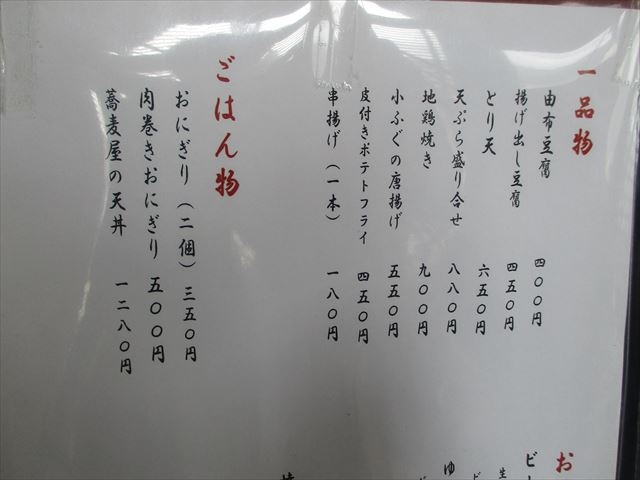 一品物
由布豆腐 四〇〇円
揚げ出し豆腐 四五〇円
とり天 六五〇円
天ぷら盛り合せ 八八〇円
地鶏焼き 九〇〇円
小ふぐの唐揚げ 五五〇円
皮付きポテトフライ 四五〇円
串揚げ（一本） 一八〇円
ごはん物
おにぎり（二個） 三五〇円
肉巻きおにぎり 五〇〇円
蕎麦屋の天丼 一二八〇円
お
ビー
生
ビ
ゆ